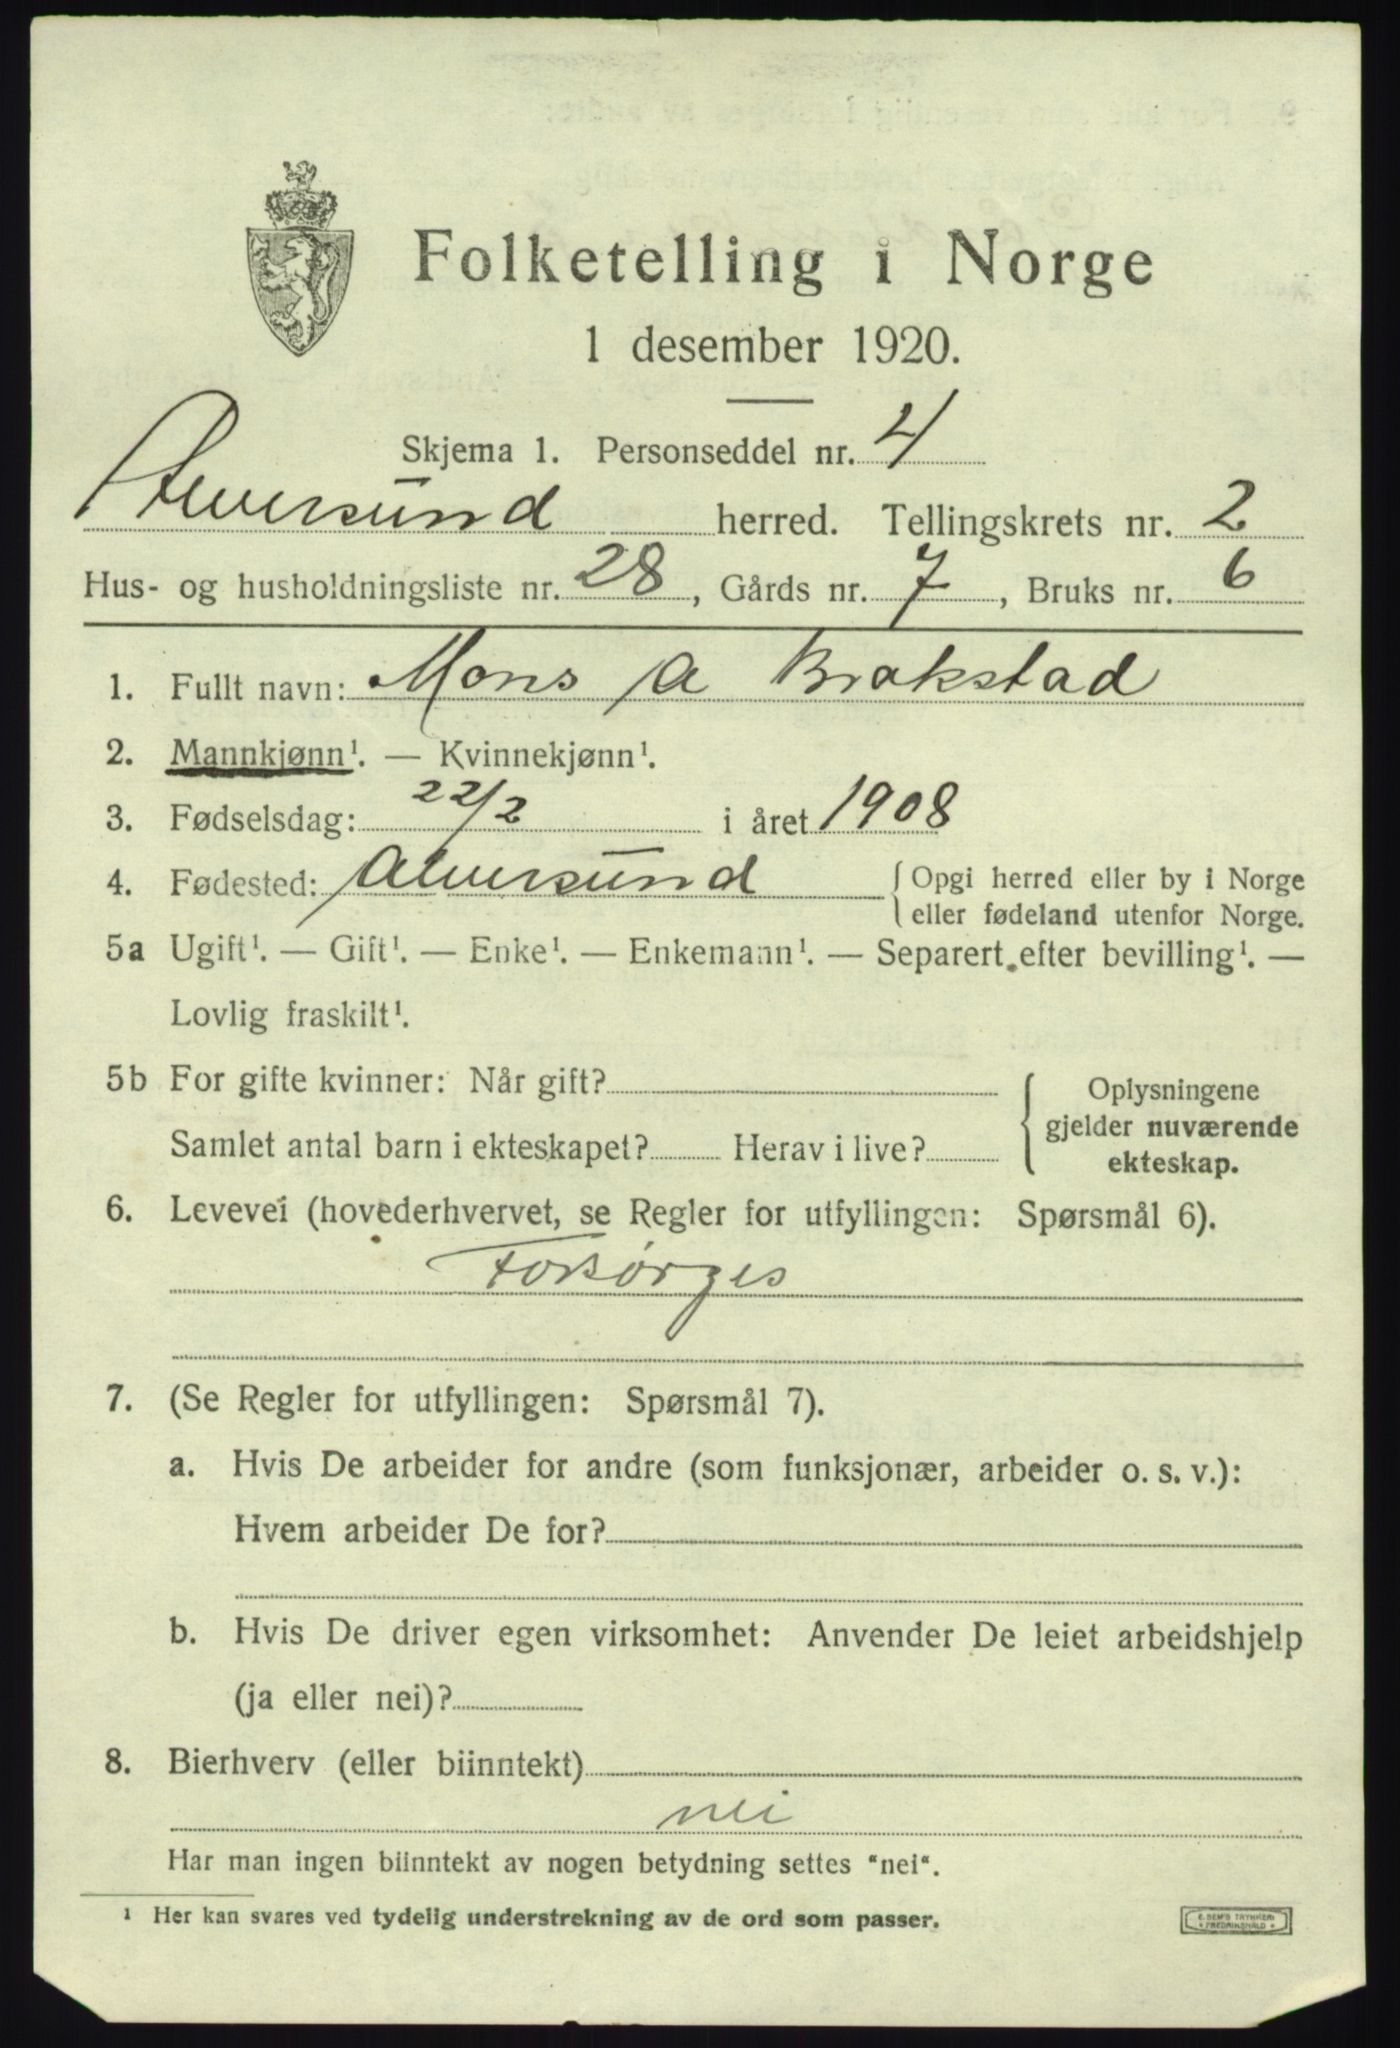 Folketelling i Norge
1 desember 1920.
Skjema 1. Personseddel nr. 4
Alversund herred. Tellingskrets nr. 2
Hus- og husholdningsliste nr. 28, Gårds nr. 7, Bruks nr. 6
1. Fullt navn: Mons A Brakstad
2. Mannkjønn¹. — Kvinnekjønn¹.
3. Fødselsdag: 22/2 i året 1908
4. Fødested: Alversund { Opgi herred eller by i Norge
eller fødeland utenfor Norge.
5a Ugift¹. — Gift¹. — Enke¹. — Enkemann¹. — Separert efter bevilling¹. —
Lovlig fraskilt¹.
5b For gifte kvinner: Når gift? { Oplysningene
gjelder nuværende
Samlet antal barn i ekteskapet? Herav i live?
ekteskap.
6. Levevei (hovederhvervet, se Regler for utfyllingen: Spørsmål 6).
Forsørges
7. (Se Regler for utfyllingen: Spørsmål 7).
a. Hvis De arbeider for andre (som funksjonær, arbeider o. s. v.):
Hvem arbeider De for?
b. Hvis De driver egen virksomhet: Anvender De leiet arbeidshjelp
(ja eller nei)?
8. Bierhverv (eller biinntekt)
nei
Har man ingen biinntekt av nogen betydning settes "nei".
¹ Her kan svares ved tydelig understrekning av de ord som passer.
E. SEM'S TRYKKERI
FREDRIKSHALD